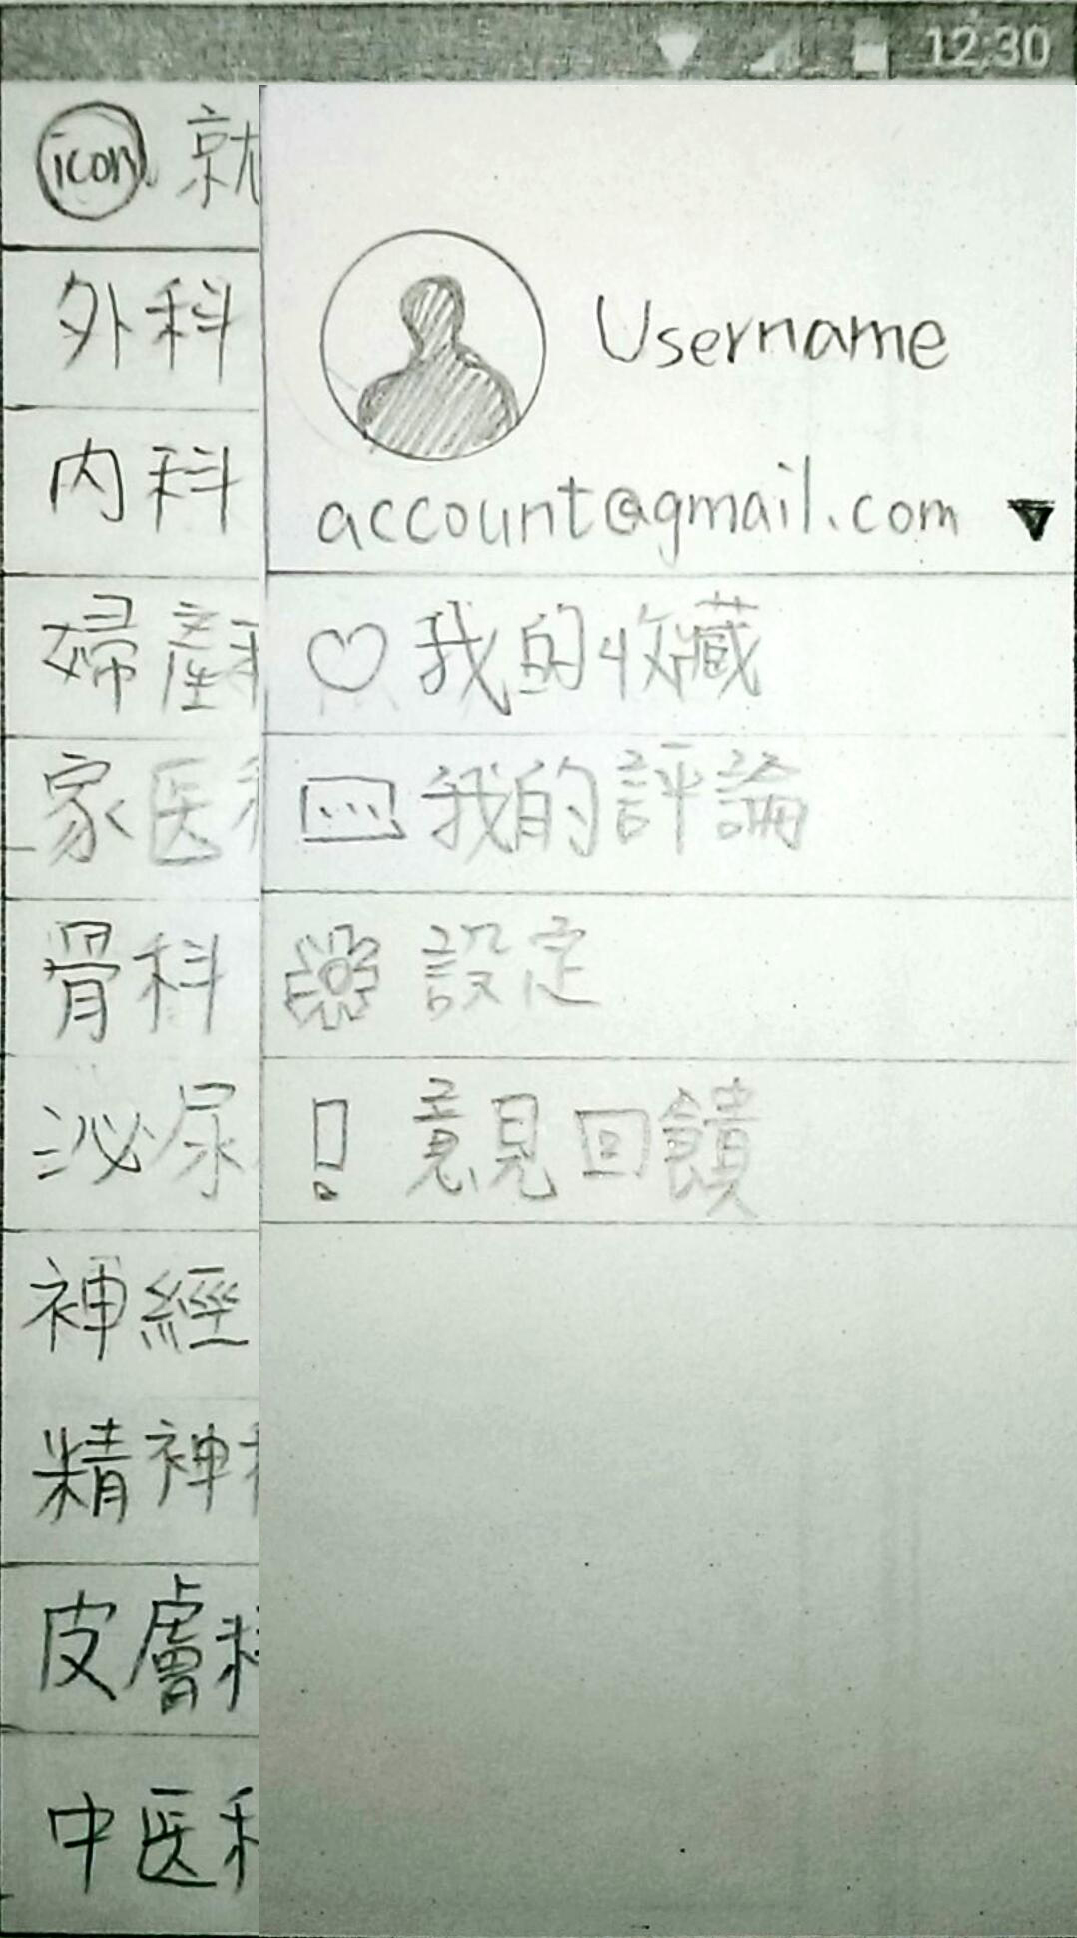 12:30
icon 就
外科
内科
婦產科
家医科
骨科
泌尿
神經
精神科
皮膚科
中医科
Username
account@gmail.com
我的收藏
我的評論
設定
意見回饋